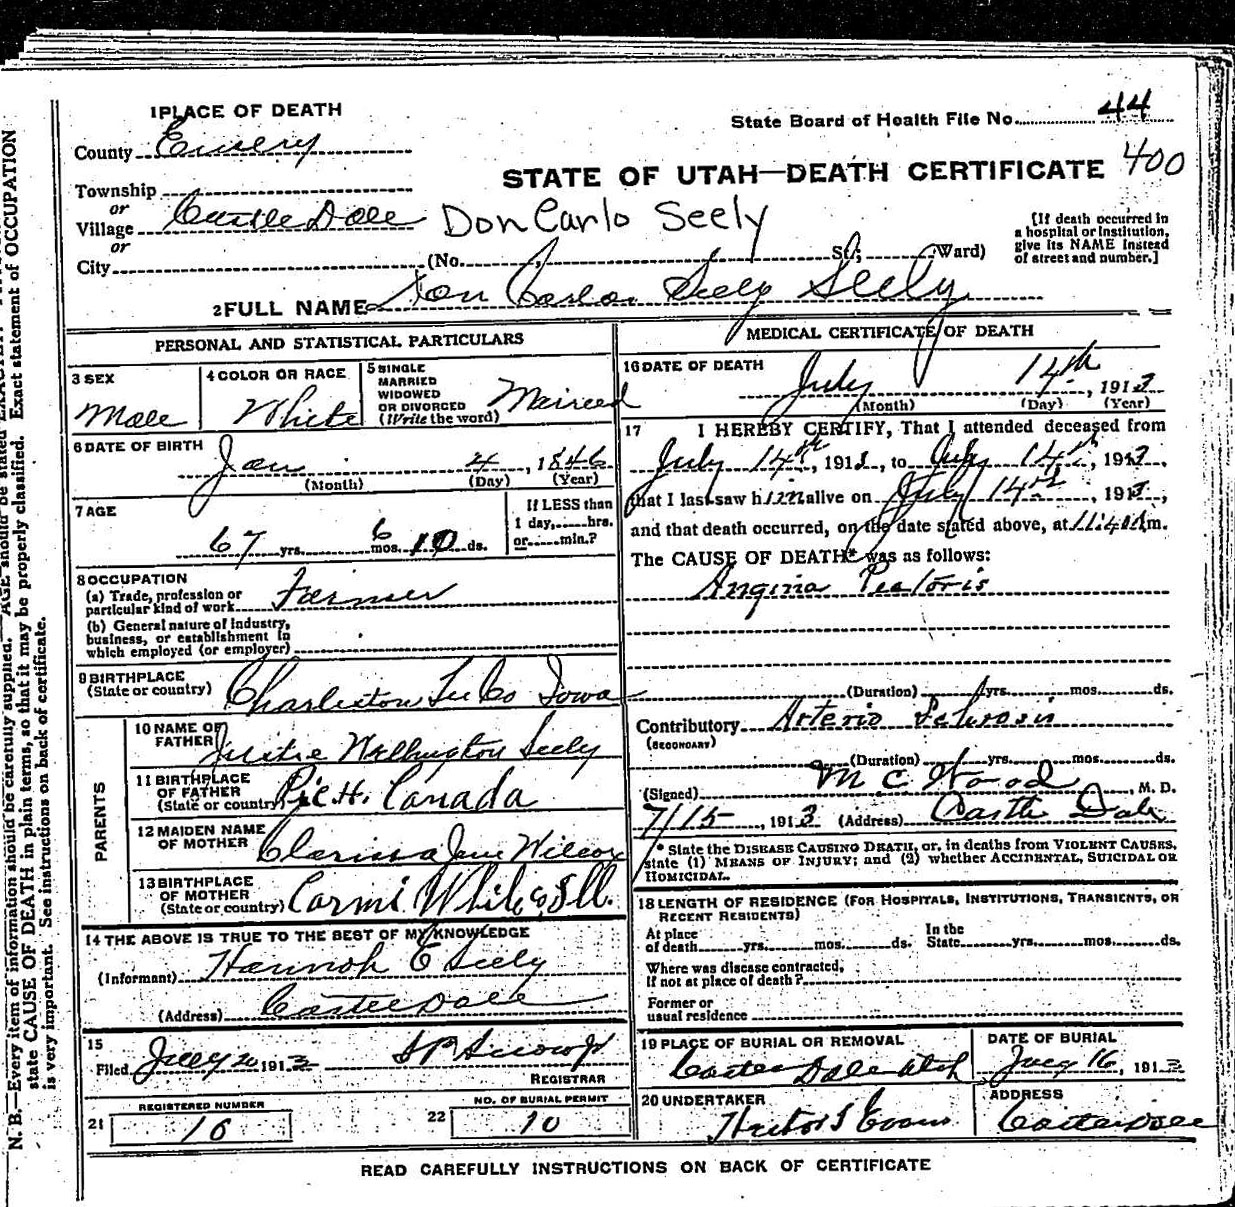 1 PLACE OF DEATH
State Board of Health File No. 44
County Emery
400
STATE OF UTAH—DEATH CERTIFICATE
Township
or
Village Castle Dale
Don Carlo Seely
or
City (No. St; Ward)
[If death occurred in
a hospital or institution,
give its NAME instead
of street and number.]
2 FULL NAME Don Carlos Seely Seely
PERSONAL AND STATISTICAL PARTICULARS
3 SEX
Male
4 COLOR OR RACE
White
5 SINGLE
MARRIED
WIDOWED
OR DIVORCED
(Write the word)
Married
6 DATE OF BIRTH
Jan 4, 1846
(Month) (Day) (Year)
7 AGE
67 yrs. 6 mos. 10 ds.
If LESS than
1 day, hrs.
or min.?
8 OCCUPATION
(a) Trade, profession or
particular kind of work Farmer
(b) General nature of industry,
business, or establishment in
which employed (or employer)
9 BIRTHPLACE
(State or country) Charleston Lee Co Iowa
PARENTS
10 NAME OF
FATHER Justis Wellington Seely
11 BIRTHPLACE
OF FATHER
(State or country) Canada
12 MAIDEN NAME
OF MOTHER Clarissa Jane Wilcox
13 BIRTHPLACE
OF MOTHER
(State or country) Carmi White Co Ill.
14 THE ABOVE IS TRUE TO THE BEST OF MY KNOWLEDGE
(Informant) Hannah E Seely
(Address) Castle Dale
15
Filed July 20 1913
REGISTRAR
REGISTERED NUMBER
21 16
NO. OF BURIAL PERMIT
22 10
MEDICAL CERTIFICATE OF DEATH
16 DATE OF DEATH
July 14th, 1913
(Month) (Day) (Year)
17 I HEREBY CERTIFY, That I attended deceased from
July 14th, 1913, to July 14th, 1913,
that I last saw him alive on July 14th, 1913,
and that death occurred, on the date stated above, at 11:40 A m.
The CAUSE OF DEATH* was as follows:
Angina Pectoris
(Duration) yrs. mos. ds.
Contributory Arterio Sclerosis
(SECONDARY)
(Duration) yrs. mos. ds.
(Signed) M C Wood, M. D.
7/15, 1913 (Address) Castle Dale
* State the DISEASE CAUSING DEATH, or, in deaths from VIOLENT CAUSES,
state (1) MEANS OF INJURY; and (2) whether ACCIDENTAL, SUICIDAL OR
HOMICIDAL.
18 LENGTH OF RESIDENCE (FOR HOSPITALS, INSTITUTIONS, TRANSIENTS, OR
RECENT RESIDENTS)
At place
of death yrs. mos. ds.
In the
State yrs. mos. ds.
Where was disease contracted,
If not at place of death?
Former or
usual residence
19 PLACE OF BURIAL OR REMOVAL
Castle Dale Utah
DATE OF BURIAL
July 16, 1913
20 UNDERTAKER
Hector Evans
ADDRESS
Castle Dale
READ CAREFULLY INSTRUCTIONS ON BACK OF CERTIFICATE
N. B.—Every item of information should be carefully supplied. AGE should be stated EXACTLY.
state CAUSE OF DEATH in plain terms, so that it may be properly classified. Exact statement of OCCUPATION
is very important. See instructions on back of certificate.